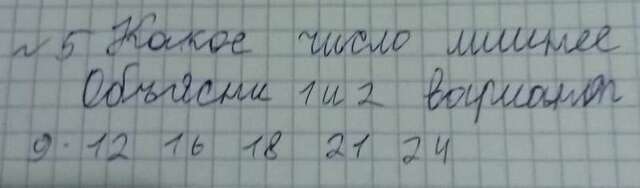 №5 Какое число лишнее
Объясни 1и2 вариант
9. 12 16 18 21 24